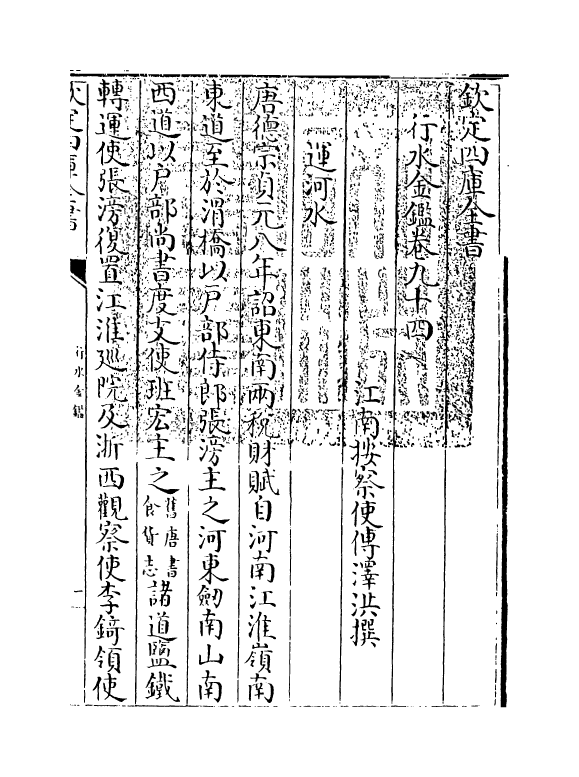 欽定四庫全書
行水金鑑卷九十四
江南按察使傅澤洪撰
運河水
唐德宗貞元八年詔東南兩税財賦自河南江淮嶺南
東道至於渭橋以戸部侍郎張滂主之河東劍南山南
西道以戸部尚書度支使班宏主之舊唐書食貨志諸道鹽鐵
轉運使張滂復置江淮廵院及浙西觀察使李錡領使
欽定四庫全書
行水金鑑
一